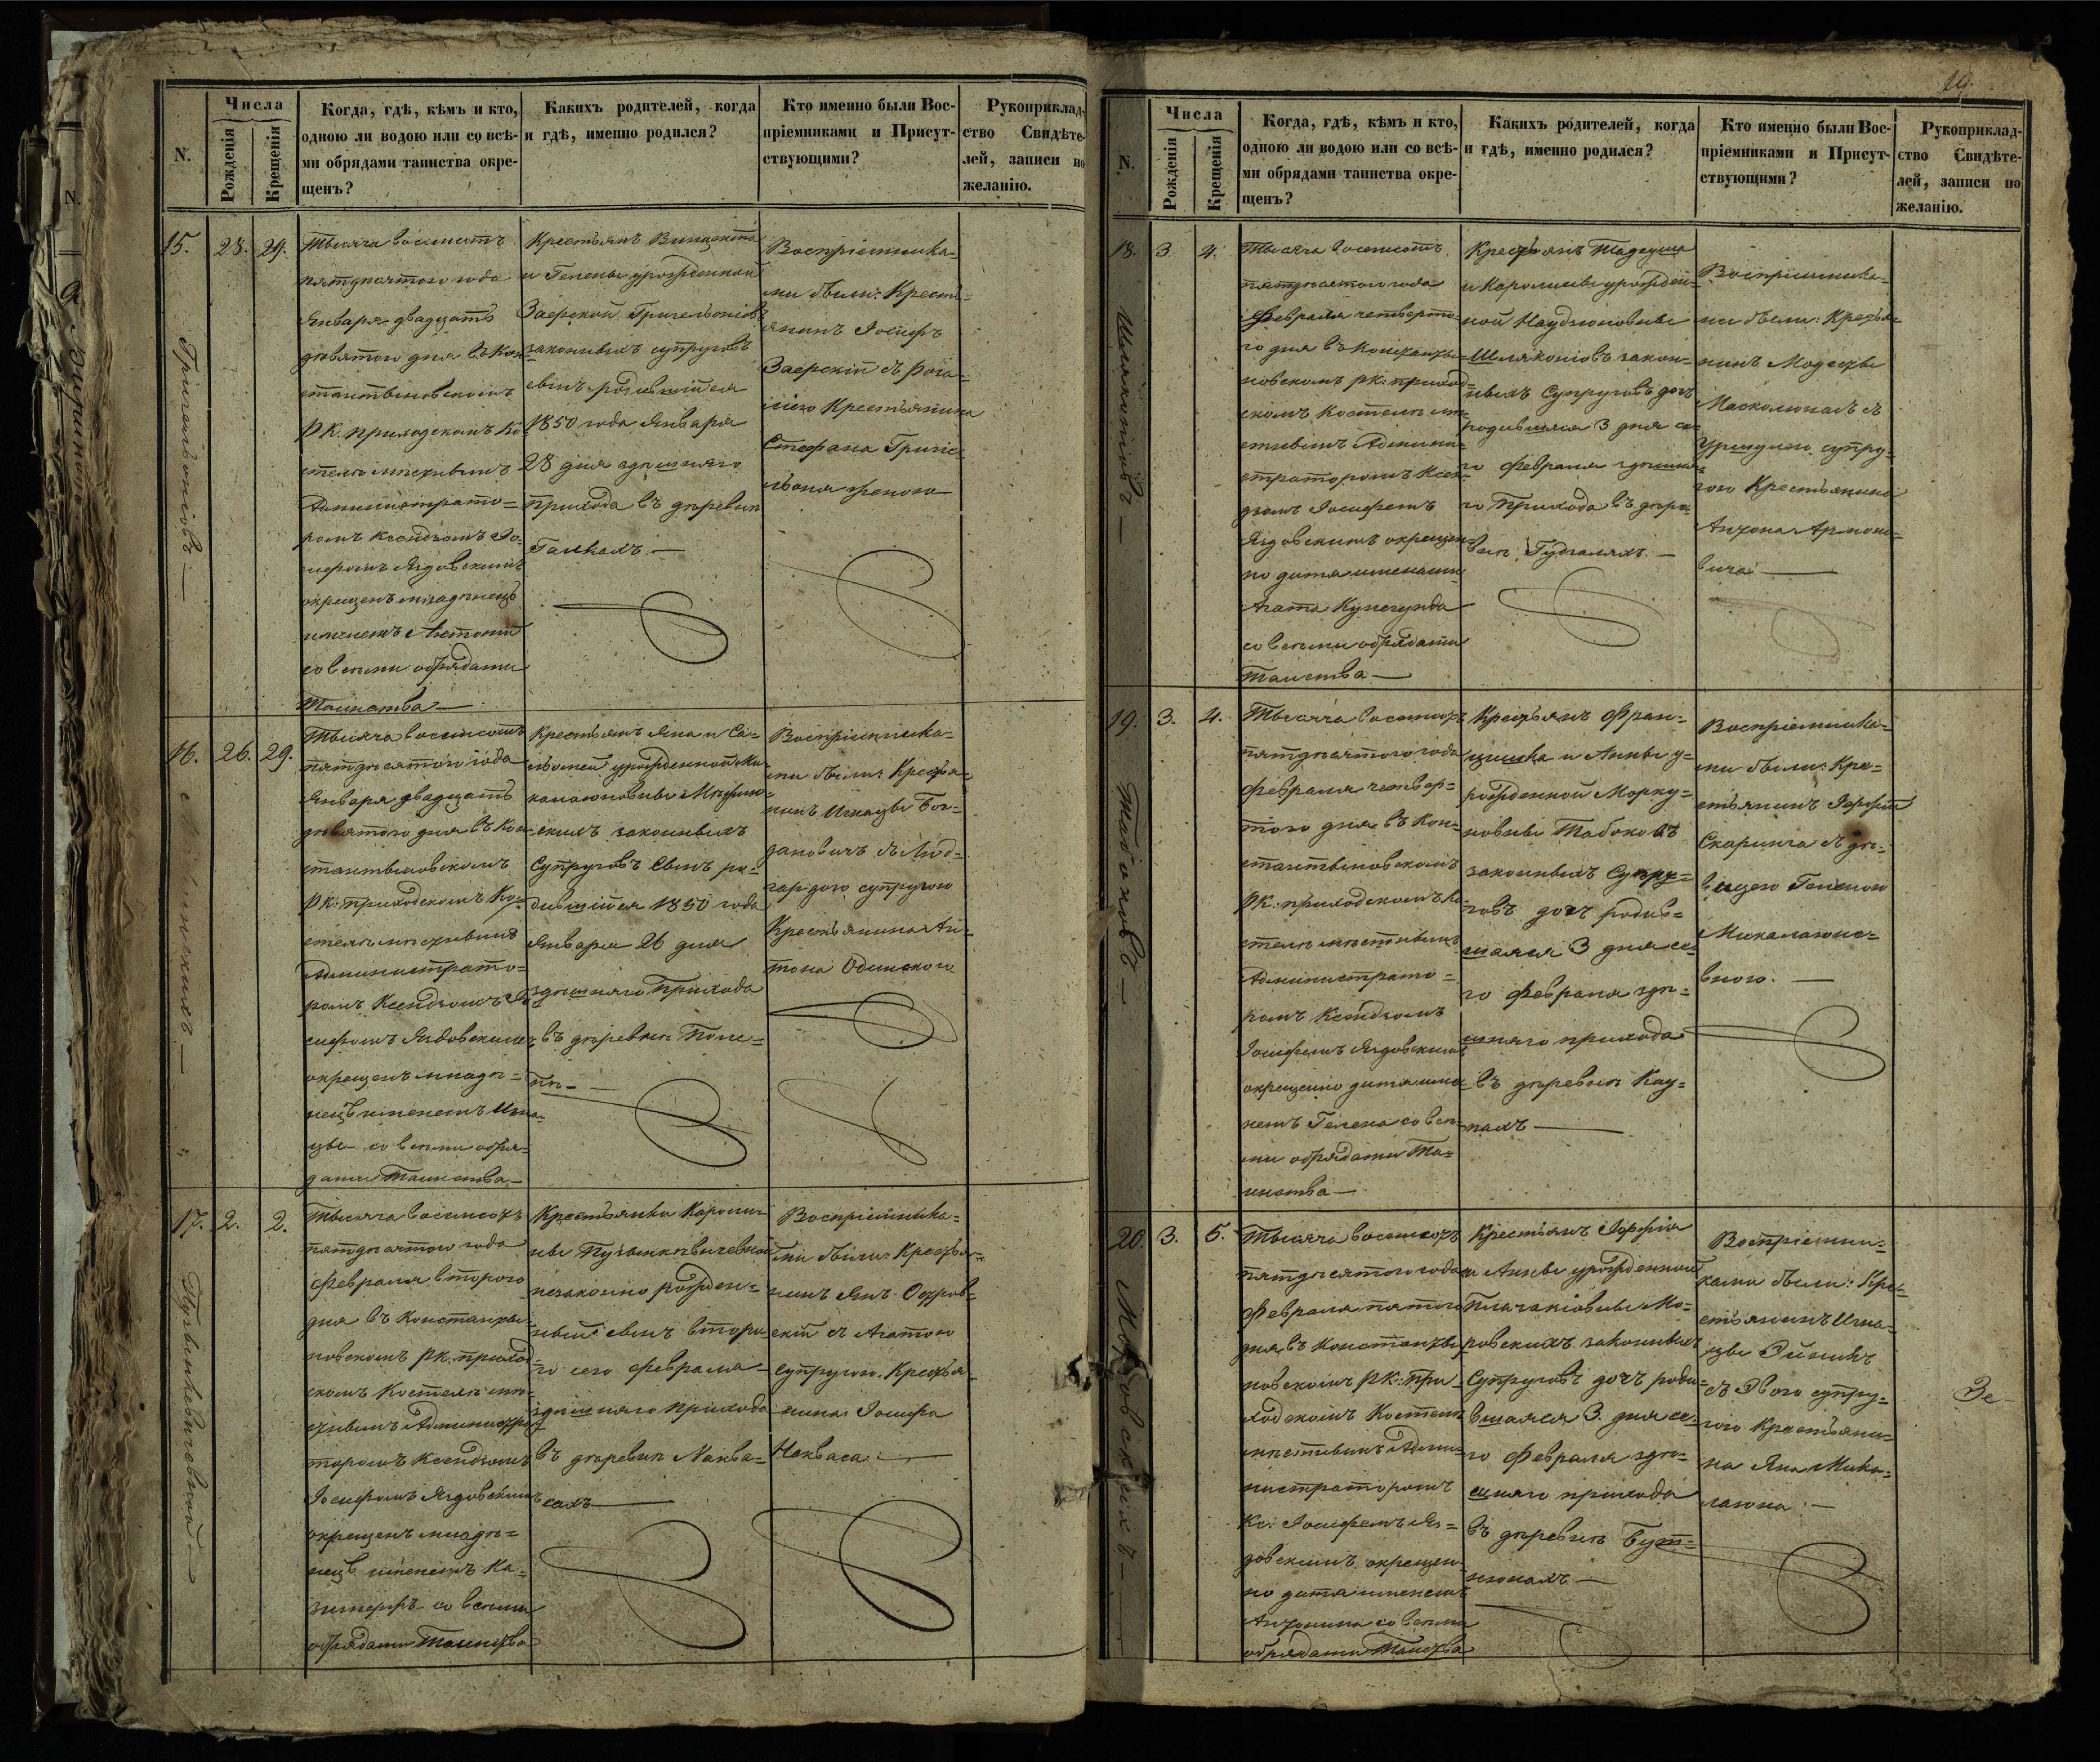 N.
Числа
Рожденія
Крещенія
Когда, гдѣ, кѣмъ и кто,
одною ли водою или со всѣ-
ми обрядами таинства окре-
щенъ?
Какихъ родителей, когда
и гдѣ, именно родился?
Кто именно были Вос-
пріемниками и Присут-
ствующими?
Рукоприклад-
ство Свидѣте-
лей, записи по
желанію.
15.
28.
29.
Тысяча восемсотъ
пятдѣсятого года
Января двадцать
девятого дня въ Кон
стантыновскомъ
РК. приходскомъ Ко
стелѣ мѣстнымъ
Администрато=
ромъ Ксендзомъ Іо-
сифомъ Яздовскимъ
окрещенъ младѣнецъ
именемъ Антоній
со всѣми обрядами
Таинства —
Крестьянъ Винцента
и Гелены урожденной
Заерской Григельонсовъ
законныхъ супруговъ
сынъ родившійся
1850 года Января
28 дня здѣшняго
прихода въ деревнѣ
Воспріемника-
ми были: Кресть-
янинъ Іосифъ
Заерскій съ Рога-
ліею Крестьянина
Стефана Григе-
льоня женою
16.
26.
29.
Тысяча восемсотъ
пятдѣсятого года
Января двадцать
девятого дня въ Кон-
стантыновскомъ
РК: приходскомъ Ко-
стелѣ мѣстнымъ
Администрато=
ромъ Ксендзомъ Іо
сифомъ Яздовскимъ
окрещенъ младѣ=
нецъ именемъ Игна-
цы со всѣми обря-
дами Таинства —
Крестьянъ Яна и Са-
ломеи урожденной Ми-
законныхъ
Супруговъ Сынъ ро-
дившійся 1850 года
Января 26 дня
здѣшняго Прихода
въ деревнѣ
Воспріемника-
ми были: Крестья-
нинъ Игнацы Бог-
дановичъ съ Люд-
гардою супругою
Крестьянина Ан-
тона Одинского
17.
2.
2.
Тысяча восемсотъ
пятдѣсятого года
Февраля второго
дня въ Константы-
новскомъ РК. приход-
скомъ Костелѣ мѣ-
стнымъ Администра-
торомъ Ксендзомъ
Іосифомъ Яздовскимъ
окрещенъ младѣ=
нецъ именемъ Ка-
зимеръ со всѣми
обрядами Таинства
Крестьянки Кароли-
ны Пузынкевичевной
незаконно рожден-
ный сынъ второ-
го сего февраля
здѣшняго прихода
въ деревнѣ Наква-
сахъ —
Воспріемника=
ми были: Крестья-
нинъ Янъ Остров-
скій съ Агатою
супругою Крестья-
нина Іосифа
Накваса —
N.
Числа
Рожденія
Крещенія
Когда, гдѣ, кѣмъ и кто,
одною ли водою или со всѣ-
ми обрядами таинства окре-
щенъ?
Какихъ родителей, когда
и гдѣ, именно родился?
Кто именно были Вос-
пріемниками и Присут-
ствующими?
Рукоприклад-
ство Свидѣте-
лей, записи по
желанію.
19.
18.
3
4.
Тысяча восемсотъ
пятдѣсятого года
Февраля четверто-
го дня въ Константы-
новскомъ РК: приход-
скомъ Костелѣ мѣ-
стнымъ Админи-
страторомъ Ксен-
дзомъ Іосифомъ
Яздовскимъ окрещен-
но дитя именами
Агата Кунегунда
со всѣми обрядами
Таинства —
Крестьянъ Тадеуша
и Каролины урожден-
ной Наудзюновны
Шляконсовъ закон-
ныхъ Супруговъ дочь
родившаяся 3 дня се-
го февраля здѣшня-
го Прихода въ дере-
внѣ
Воспріемника-
ми были: Крестья-
нинъ Модесты
съ
Уршулею супру-
гою Крестьянина
Антона Армоно-
вича —
19.
3.
4.
Тысяча восемсотъ
пятдѣсятого года
Февраля четвер-
того дня въ Кон-
стантыновскомъ
РК. приходскомъ Ко
стелѣ мѣстнымъ
Администрато=
ромъ Ксендзомъ
Іосифомъ Яздовскимъ
окрещенно дитя име
немъ Гелена со всѣ-
ми обрядами Та-
инства —
Крестьянъ Фран-
цишка и Анны у-
рожденной Марку-
новны Табоковъ
законныхъ Супру-
говъ дочь родив=
шаяся 3 дня се-
го Февраля здѣ-
шняго прихода
въ деревнѣ Кау-
нахъ —
Воспріемника-
ми были: Кре-
стьянинъ
Скаринга съ дѣ-
вицею Геленою
Микалаюно-
вною. —
20.
3.
5.
Тысяча восемсотъ
пятдѣсятого года
Февраля пятого
дня въ Константы-
новскомъ РК: При-
ходскомъ Костелѣ
мѣстнымъ Адми-
нистраторомъ
Кс: Іосифомъ Яз-
довскимъ окрещен-
но дитя именемъ
Антонина со всѣми
обрядами Таинства
Крестьянъ
и Анны урожденной
Мо-
ровскихъ законныхъ
Супруговъ дочь роди-
вшаяся 3. дня се-
го Февраля здѣ-
шняго прихода
въ деревнѣ Бут-
кюнахъ —
Воспріемни-
ками были: Кре-
стьянинъ Игна-
цы
съ Эвою супру-
гою Крестьяни-
на Яна Мика-
лаюна —